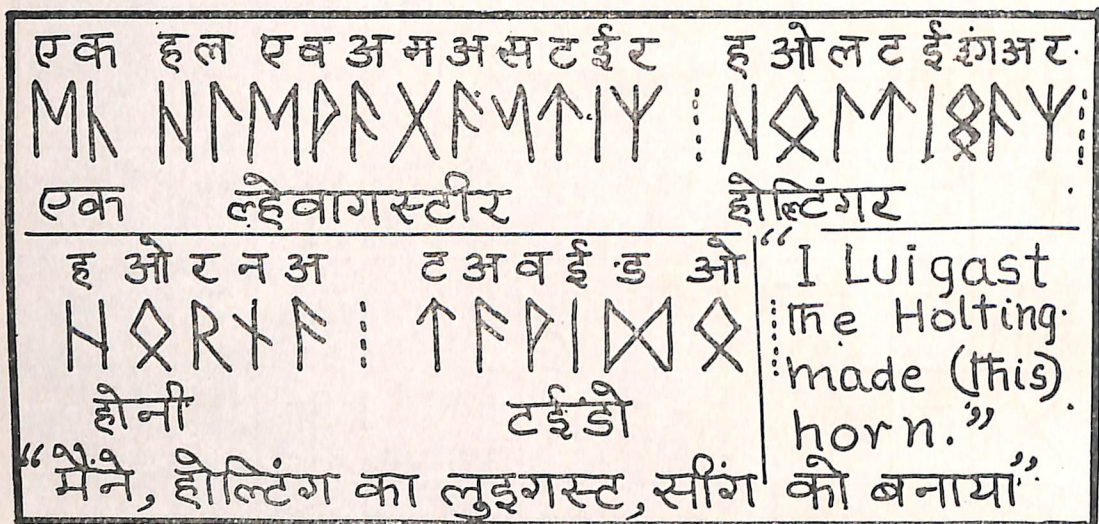 एक हल एव अ म अ स ट ई र ह ओ ल ट ई इंग अ र
ᛖᚲ ᚺᛚᛖᚹᚨᚷᚨᛊᛏᛁᛉ ⁝ ᚺᛟᛚᛏᛁᛜᚨᛉ ⁝
एक ल्हेवागस्टीर होल्टिंगर
ह ओ र न अ ट अ व ई ड ओ
ᚺᛟᚱᚾᚨ ⁝ ᛏᚨᚹᛁᛞᛟ ⁝
होर्नी टईडो
“I Luigast
the Holting
made (this)
horn.”
“मैंने, होल्टिंग का लुइगस्ट, सींग को बनाया”